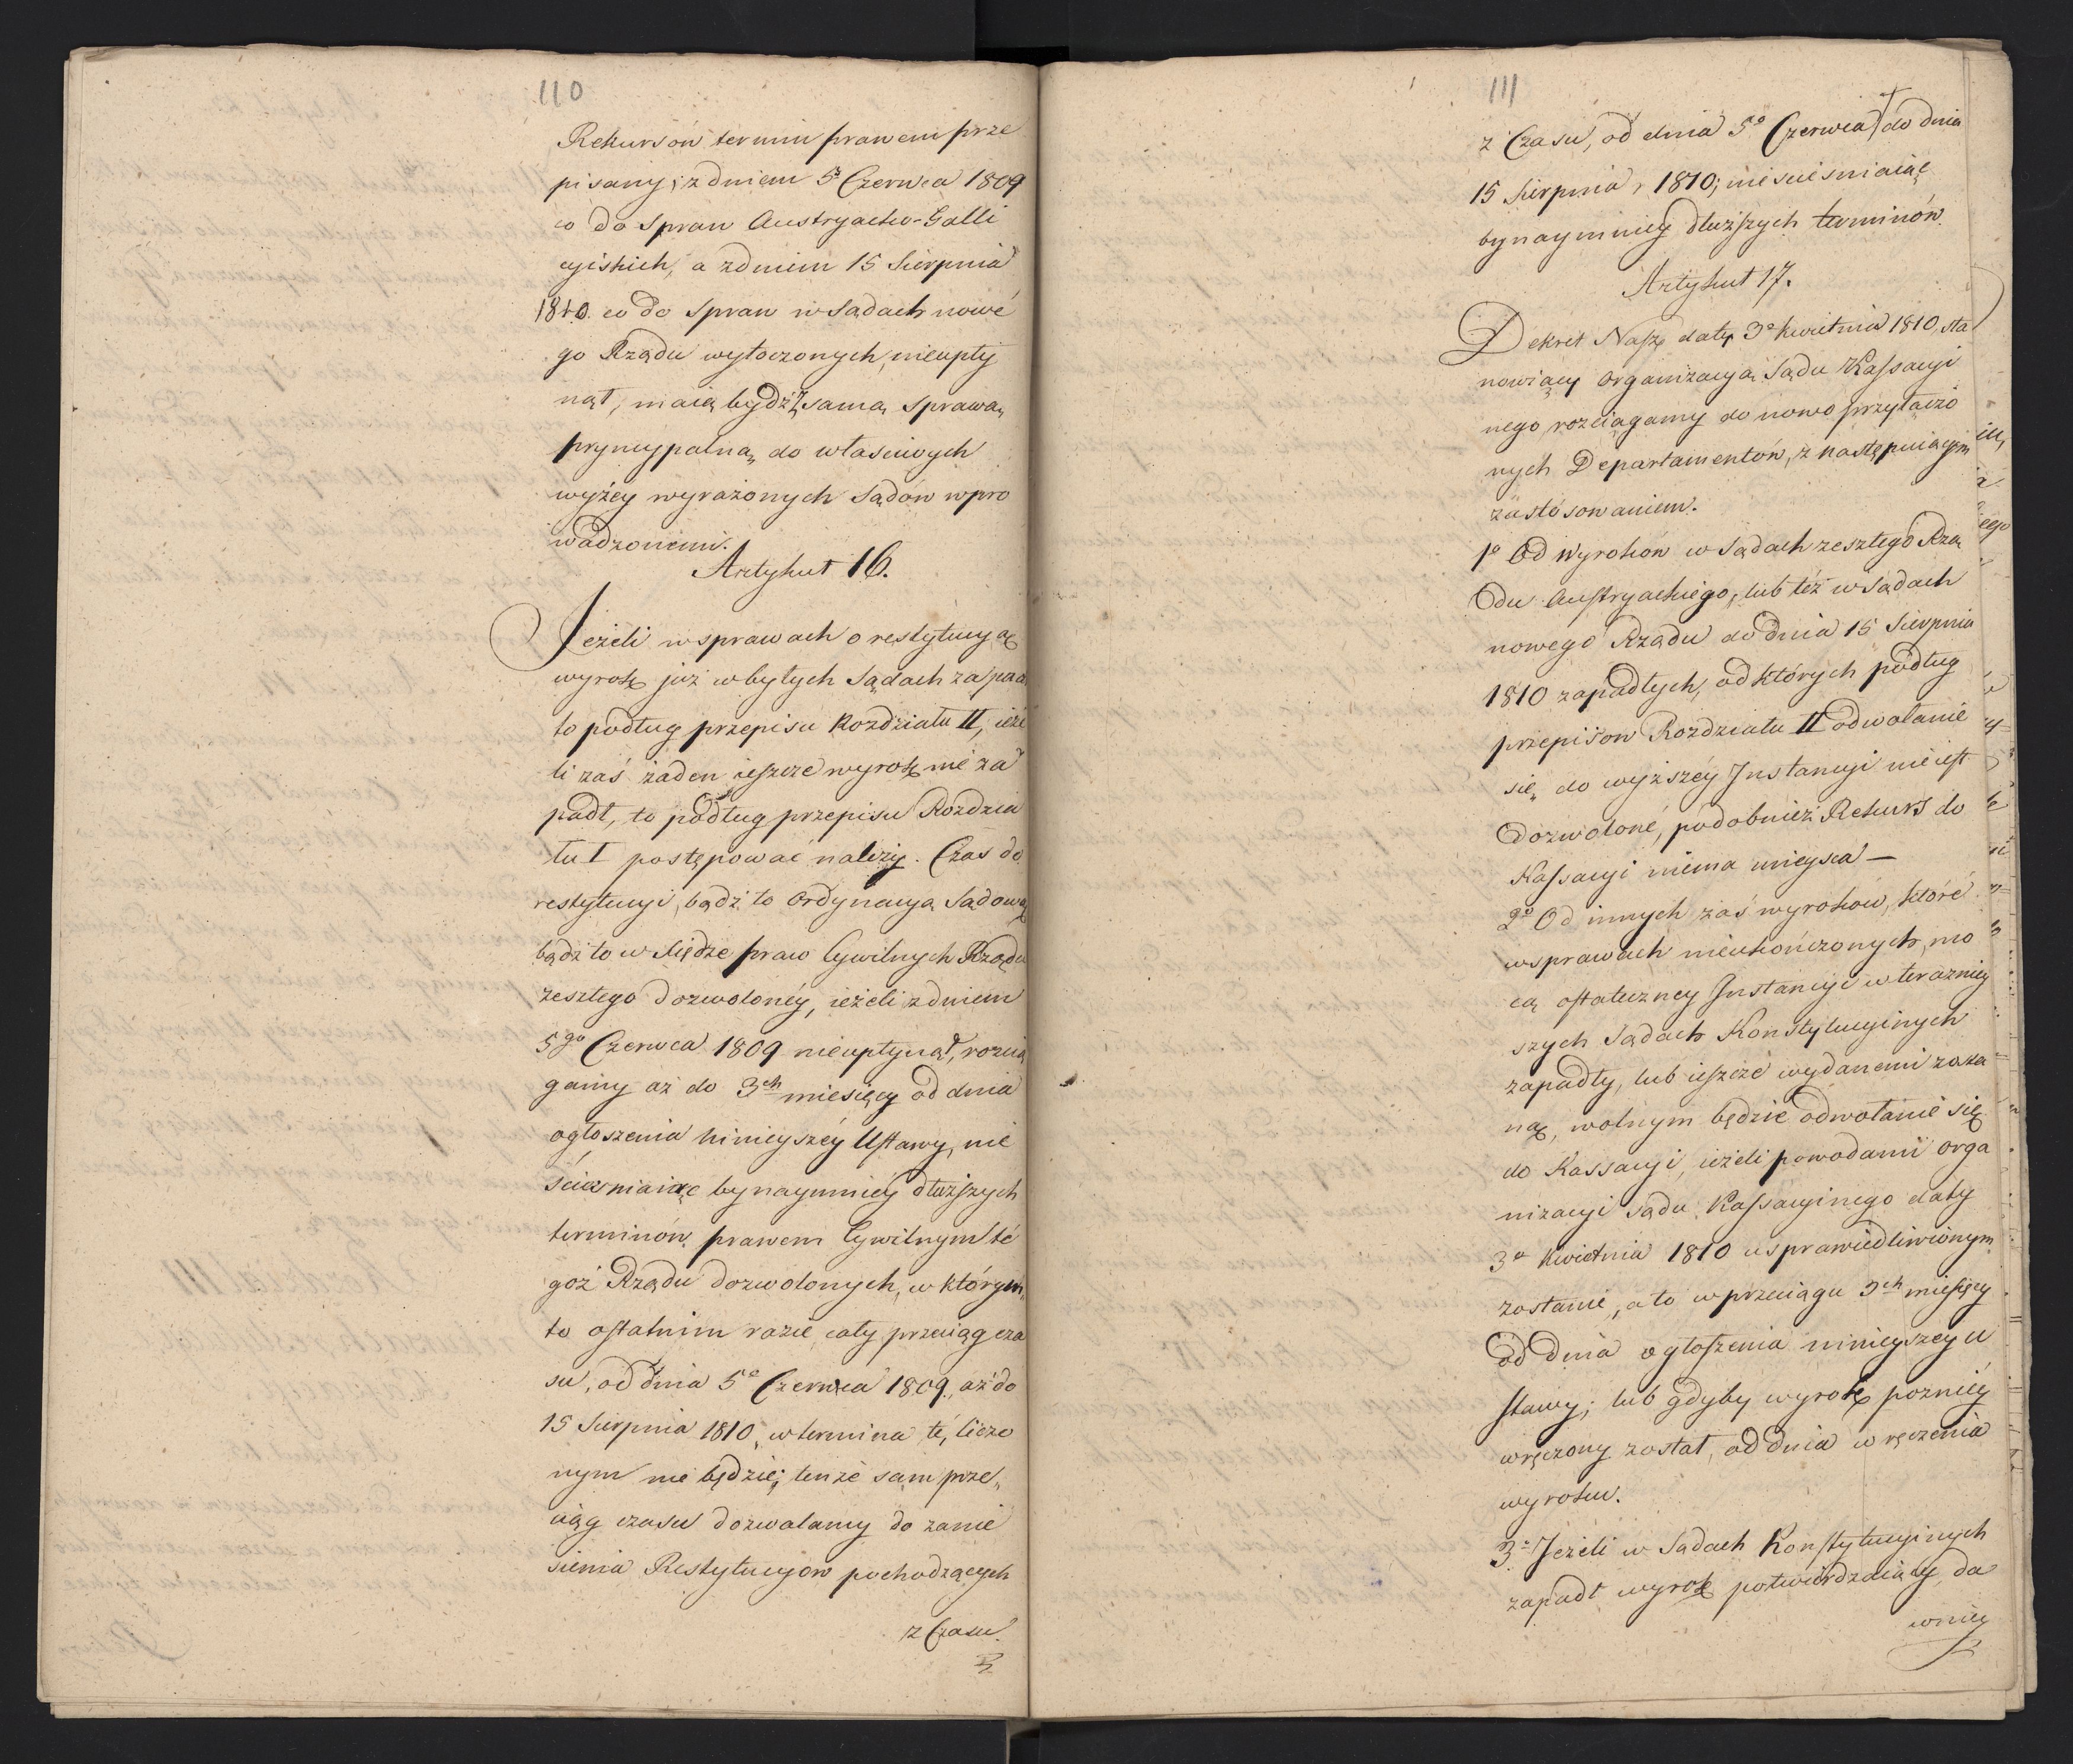 110
Rekursów termin prawem prze
pisany; z dniem 5º Czerwca 1809
co do Spraw Austryacko-Galli
cyiskich, a z dniem 15 Sierpnia
1810. co do Spraw w Sądach nowé
go Rządu wytoczonych, nieupły
nął, maią bydź z samą sprawą
pryncypalną do właściwych
wyżey wyrażonych Sądów wpro
wadzonemi.
Artykuł 16.
Jeżeli w sprawach o restytucyą
wyrok już w byłych Sądach zapadł
to podług przepisu Rozdziału II, ieże
li zaś żaden ieszcze wyrok nie za
padł, to podług przepisu Rozdzia
łu I postępować należy. Czas do
restytucyi, bądź to Ordynacyą Sądową
bądź to w Xiędze praw Cywilnych Rządu
zeszłego dozwoloney, ieżeli z dniem
5go Czerwca 1809 nieupłynął, rozcią
gamy aż do 3ch miesięcy od dnia
ogłoszenia ninieyszéy Ustawy, nie
ścieśniaiąc bynaymniéy dłuższych
terminów prawem Cywilnym té
goż Rządu dozwolonych, w którym
to ostatnim razie cały przeciąg cza
su, od dnia 5º Czerwca 1809. aż do
15 Sierpnia 1810, w termina té, liczo
nym nie będzie; tenże sam prze„
ciąg czasu dozwalamy do zanie
sienia Restytucyow pochodzących
z Czasu
111
z Czasu, od dnia 5º Czerwca do dnia
15 Sierpnia, 1810; nieścieśniaiąc
bynaymniéy dłuższych terminów.
Artykuł 17.
Dekret Nasz daty 3º kwietnia 1810, sta
nowiący organizacyą Sądu Kassacyi
nego rozciągamy do nowo przyłączo
nych Departamentów, z następuiącym
zastosowaniem.
1º Od Wyroków w Sądach zeszłego Rzą
du Austryackiego, lub też w Sądach
nowego Rządu do dnia 15 Sierpnia
1810 zapadłych, od których podług
przepisow Rozdziału II odwołanie
się do wyższéy Instancyi nie iest
dozwoloné, podobnież Rekurs do
Kassacyi niema mieysca —
2º Od innych zaś wyroków, któré
w sprawach nieukończonych, mo
cą ostateczney Instancyi w teraźniey
szych Sądach Konstytucyinych
zapadły, lub ieszcze wydanemi zosta
ną, wolnym będzie odwołanie się
do Kassacyi, ieżeli powodami orga
nizacyi Sądu Kassacyinego daty
3º kwietnia 1810 usprawiedliwionym
zostanie, a to w przeciągu 3ch miesięcy
od dnia ogłoszenia ninieyszey U
stawy; lub gdyby wyrok poznieÿ
wręczony został, od dnia wręczenia
wyroku.
3º Jeżeli w Sądach Konstytucyinych
zapadł wyrok potwierdzaiący, da
wniey